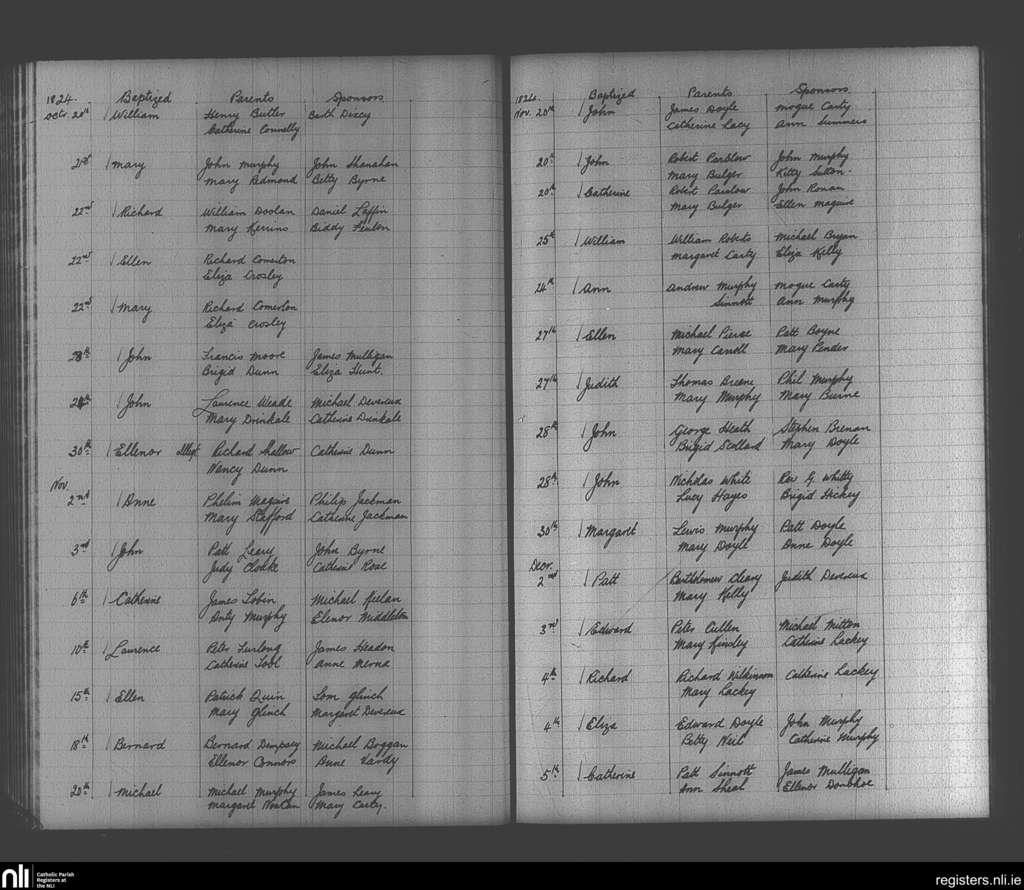 1824. Baptized Parents Sponsors
Octr. 20th William Henry Butler Barth Dixcy
Catherine Connelly
21st Mary John Murphy John Shanahan
Mary Redmond Betty Byrne
22nd Richard William Doolan Daniel Laffin
Mary Kerrins Biddy Fenlon
22nd Ellen Richard Comerton
Eliza Crosley
22nd Mary Richard Comerton
Eliza Crosley
28th John Francis Moore James Mulligan
Brigid Dunn Eliza Hunt.
John Laurence Meade Michael Devereux
Mary Drinkale Catherine Drinkale
30th Ellenor Illegt. Richard Shallow Catherine Dunn
Nancy Dunn
Nov.
2nd Anne Phelim Maguire Philip Jackman
Mary Stafford Catherine Jackman
3rd John Patt Leary John Byrne
Judy Cloake Catherine Rose
6th Catherine James Tobin Michael Keelan
Anty Murphy Elenor Middleton
10th Laurence Peter Furlong James Headon
Catherine Tool Anne Merna
15th Ellen Patrick Quin Tom Glinch
Mary Glinch Margaret Devereux
18th Bernard Bernard Dempsey Michael Boggan
Ellenor Connors Anne Vardy
20th Michael Michael Murphy James Leary
Margaret Nowlan Mary Carty.
1824. Baptized Parents Sponsors
Nov. 20th John James Doyle Mogue Carty
Catherine Lacy Ann Summers
20th John Robert Parslow John Murphy
Mary Bulger Kitty Sutton.
20th Catherine Robert Parslow John Ronan
Mary Bulger Ellen Maguire
25th William William Roberts Michael Bryan
Margaret Carty Eliza Kelly
24th Ann Andrew Murphy Mogue Carty
Sinnott Ann Murphy
27th Ellen Michael Pierse Patt Boyne
Mary Carroll Mary Pender
27th Judith Thomas Breene Phil Murphy
Mary Murphy Mary Burne
28th John George Heath Stephen Brenan
Brigid Scollard Mary Doyle
28th John Nicholas White Rev G. Whitty
Lucy Hayes Brigid Hickey
30th Margaret Lewis Murphy Patt Doyle
Mary Doyle Anne Doyle
Decr.
2nd Patt Bartholomew Cleary Judith Devereux
Mary Kelly
3rd Edward Peter Cullen Michael Mitton
Mary Kinsley Catherine Lackey
4th Richard Richard Wilkinson Catherine Lackey
Mary Lackey
4th Eliza Edward Doyle John Murphy
Betty Neil Catherine Murphy
5th Catherine Patt Sinnott James Mulligan
Ann Sheal Ellenor Donohoe
nli Catholic Parish
Registers at
the NLI
registers.nli.ie